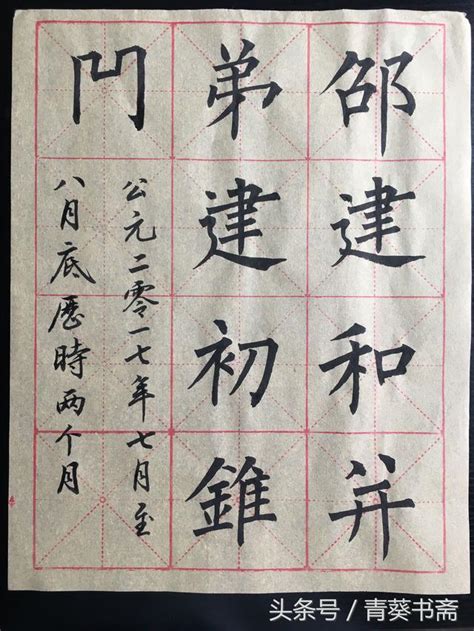 邵建和并
弟建初錐
公元二零一七年七月至
八月底歷時两个月
头条号 / 青葵书斋